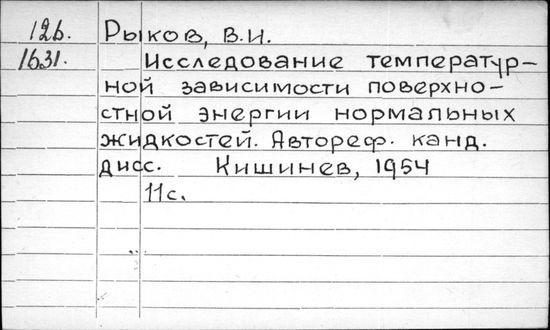 12б. Рыков, В.И.
1631. Исследование температур-
ной зависимости поверхно-
стной энергии нормальных
жидкостей. Автореф. канд.
дисс. Кишинев, 1954
11с.